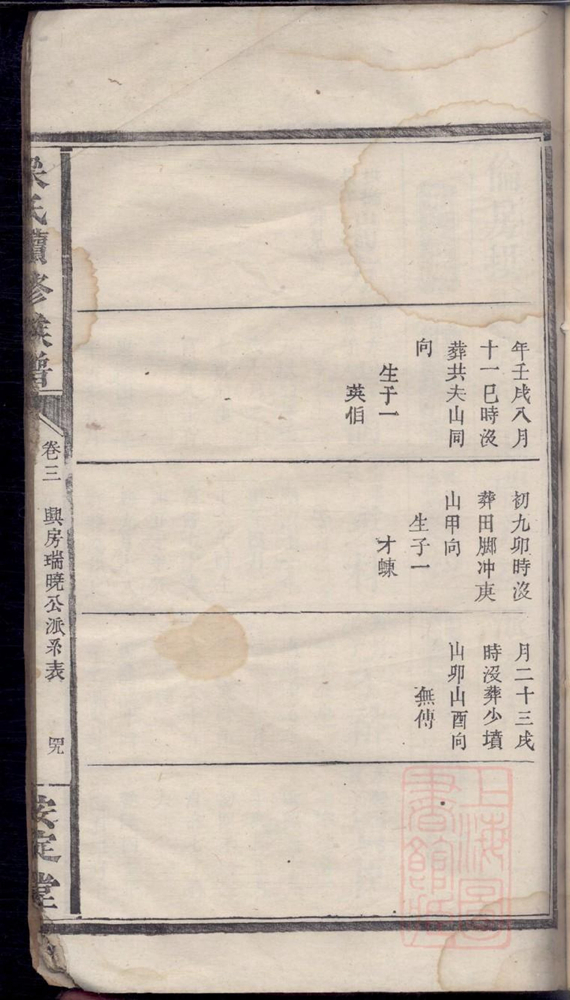 年壬戌八月
十一巳時沒
葬共夫山同
向
生子一
英伯
初九卯時沒
葬田脚冲庚
山甲向
生子一
才竦
月二十三戌
時沒葬少墳
山卯山酉向
無傳
氏續修族譜
卷三
興房瑞曉公派系表
安定堂
上海圖書館藏